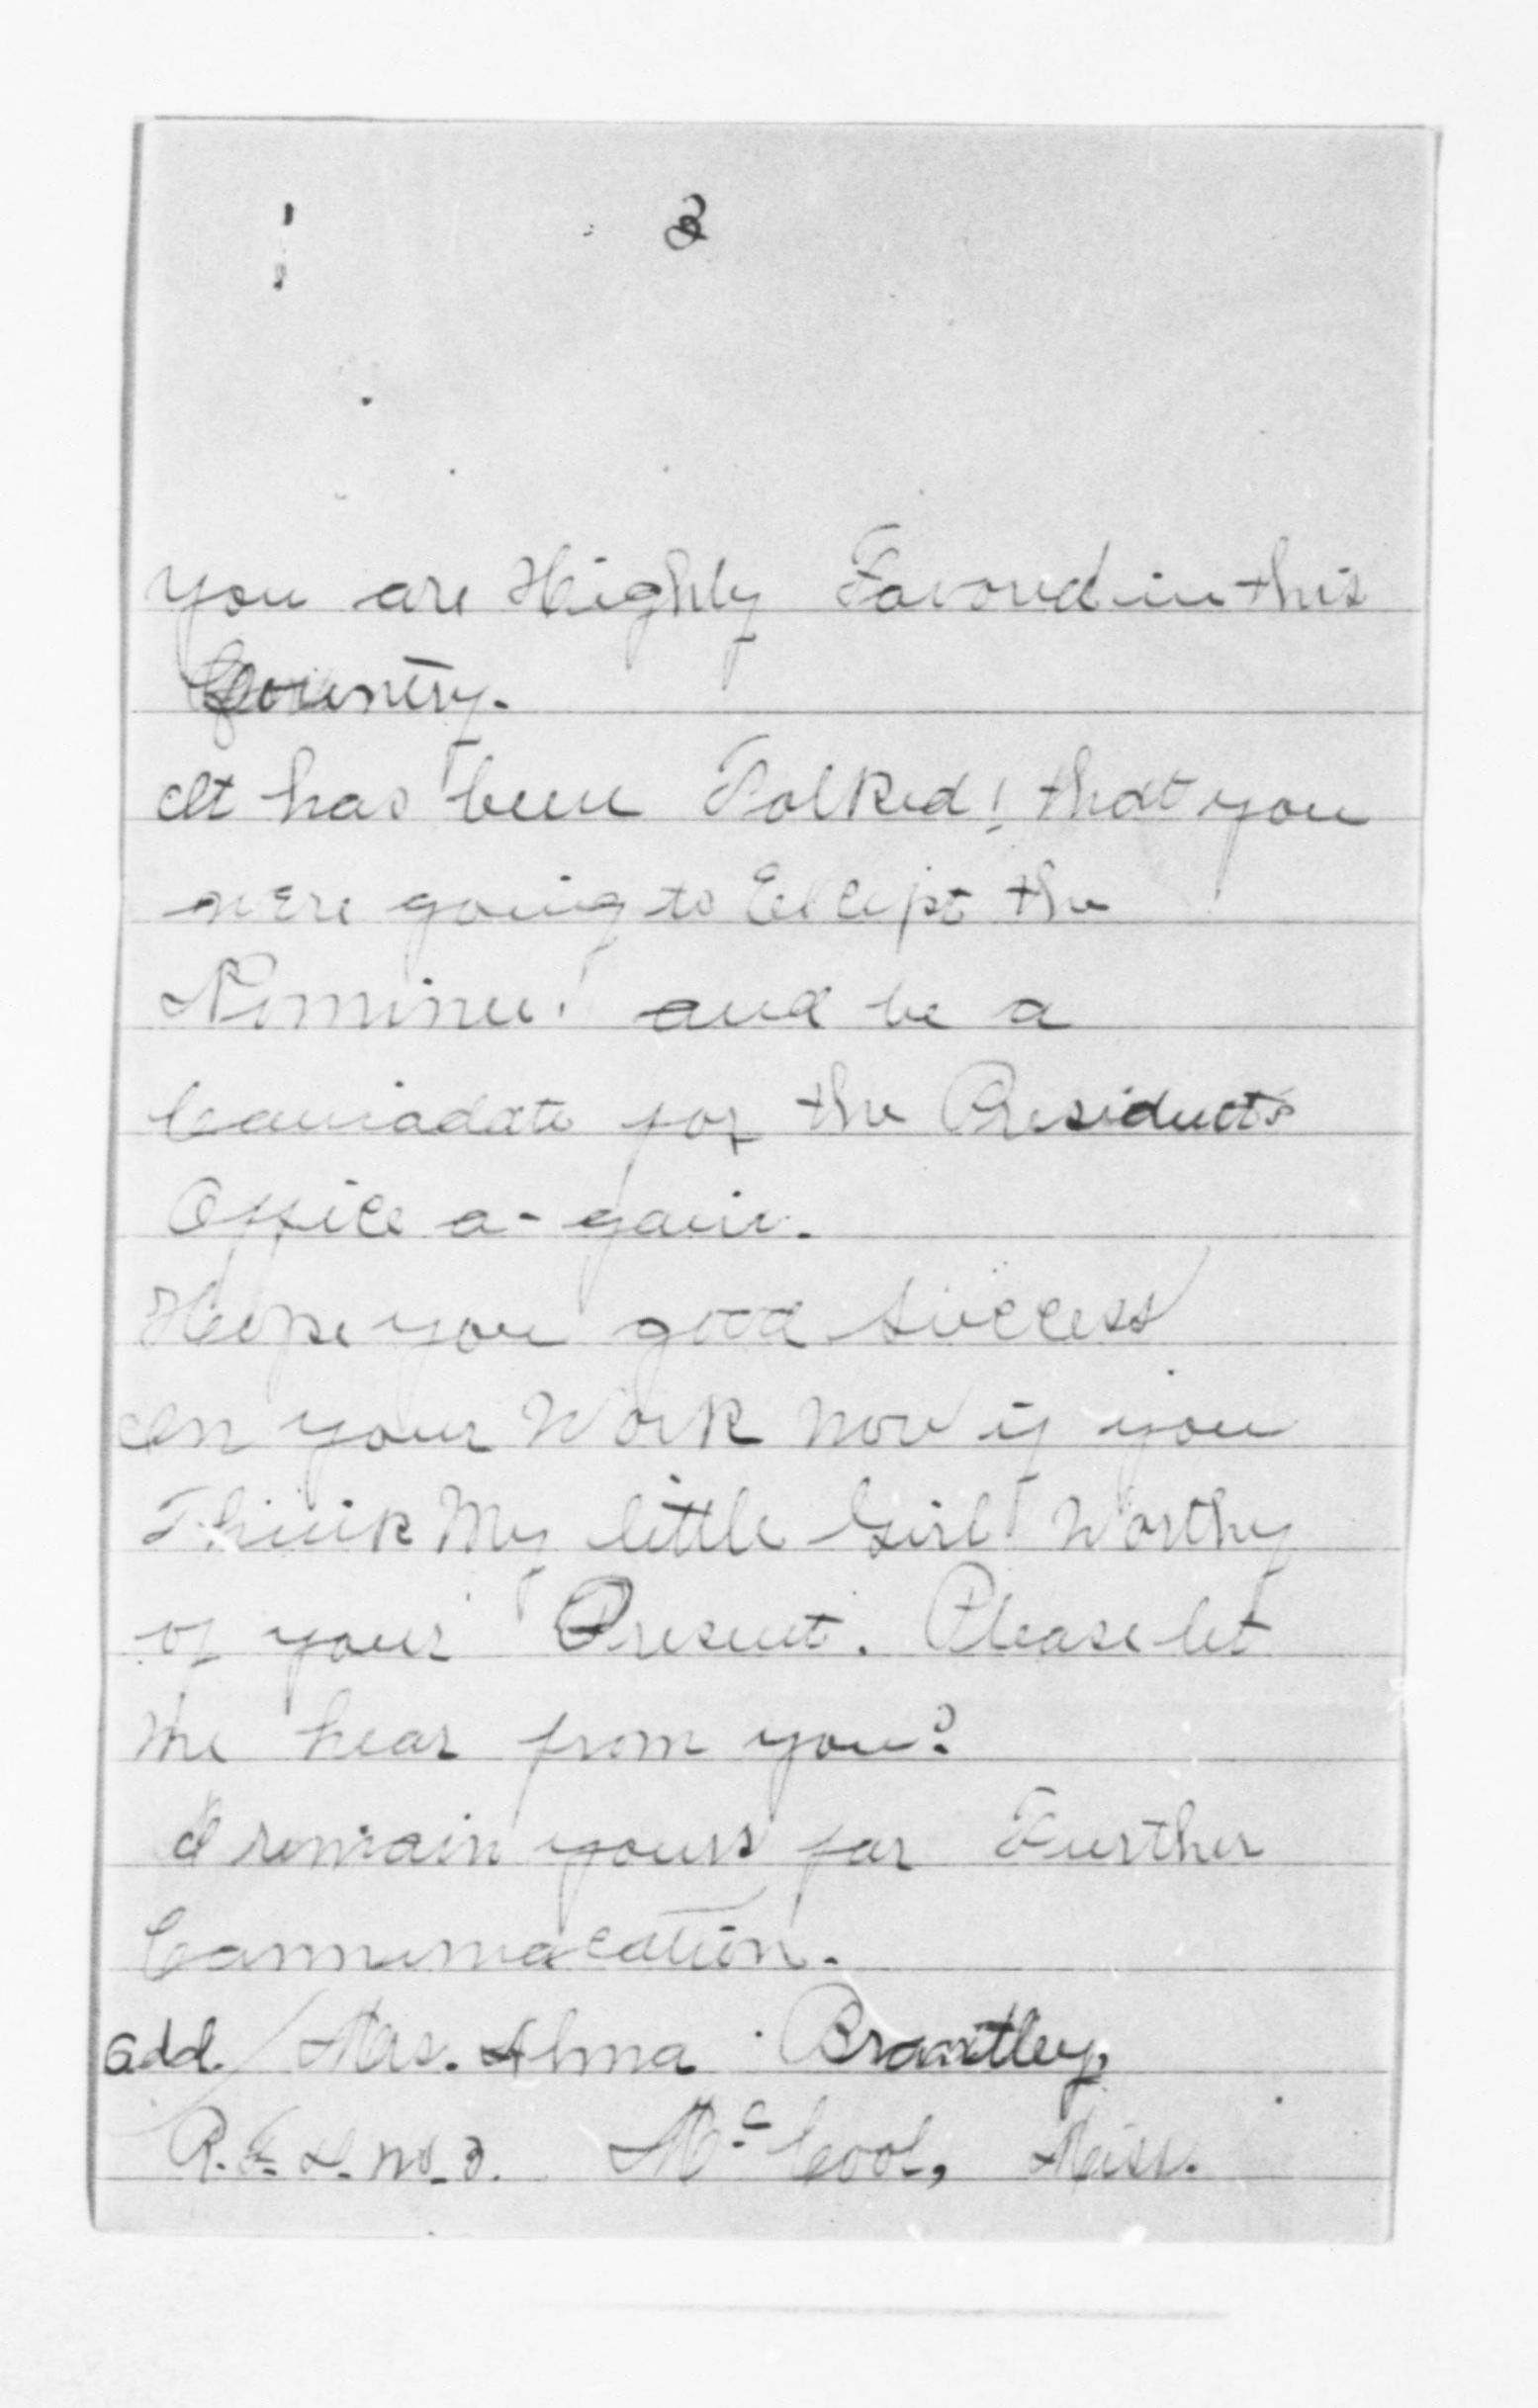 3
you are Highly Favord in this
Country.
It has been Talked! that you
were going to Except the
Nominee! and be a
Caniadate for the Presidents
Office a-gain.
Hope you good success
in your Work now if you
Think My little Girl Worthy
of your Present. Please let
Me hear from you?
I remain yours for Further
Communacation.
add / Mrs. Alma Brantley,
R.F.D. No. 3. Mc Cool, Miss.